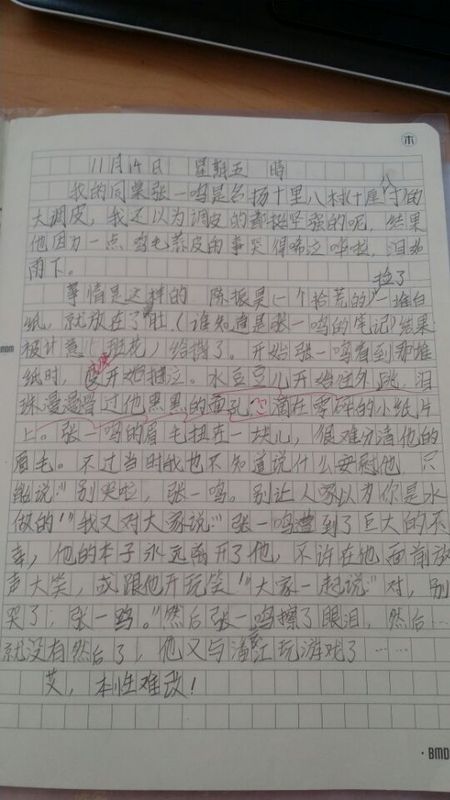 11月14日 星期五 晴
我的同桌张一鸣是名扬十里八村(十厘八寸)的
大调皮，我还以为调皮的都挺坚强的呢，结果
他因为一点鸡毛蒜皮的事哭得唏立哗啦，泪如
雨下。
事情是这样的 陈振昊(一个拾荒的)捡了一堆白
纸，就放在了肚，(谁知道是张一鸣的笔记)结果
被计意(班花)给撕了。开始张一鸣看到那堆
纸时，便开始抽泣。水豆豆儿开始往外跳，泪
珠漫漫晋过他黑黑的面孔 滴在零碎的小纸片
上。张一鸣的眉毛扭在一块儿，很难分清他的
眉毛。不过当时我也不知道说什么安慰他 只
能说："别哭啦，张一鸣。别让人家以为你是水
做的！"我又对大家说："张一鸣遭到了巨大的不
幸，他的本子永远离开了他，不许在他面前放
声大笑，或跟他开玩笑！"大家一起说："对，别
哭了，张一鸣。"然后张一鸣擦了眼泪，然后…
就没有然后了，他又与潘江玩游戏了……
艾，本性难改！
BMD